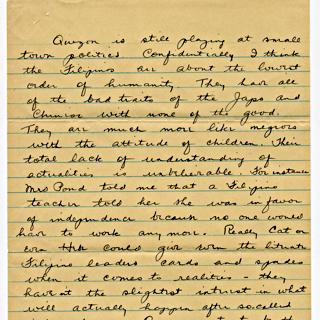 Quezon is still playing at small
town politics Confidentially I think
the Filipinos are about the lowest
order of humanity They have all
of the bad traits of the Japs and
Chinese with none of the good.
They are much more like negroes
with the attitude of children. Their
total lack of understanding of
actualities is unbelievable. For instance
Mrs Pond told me that a Filipino
teacher told her she was in favor
of independence because no one would
have to work any more. Really Cat or
even could give even the literate
Filipino leaders cards and spades
when it comes to realities - they
have not the slightest interest in what
will actually happen after so-called